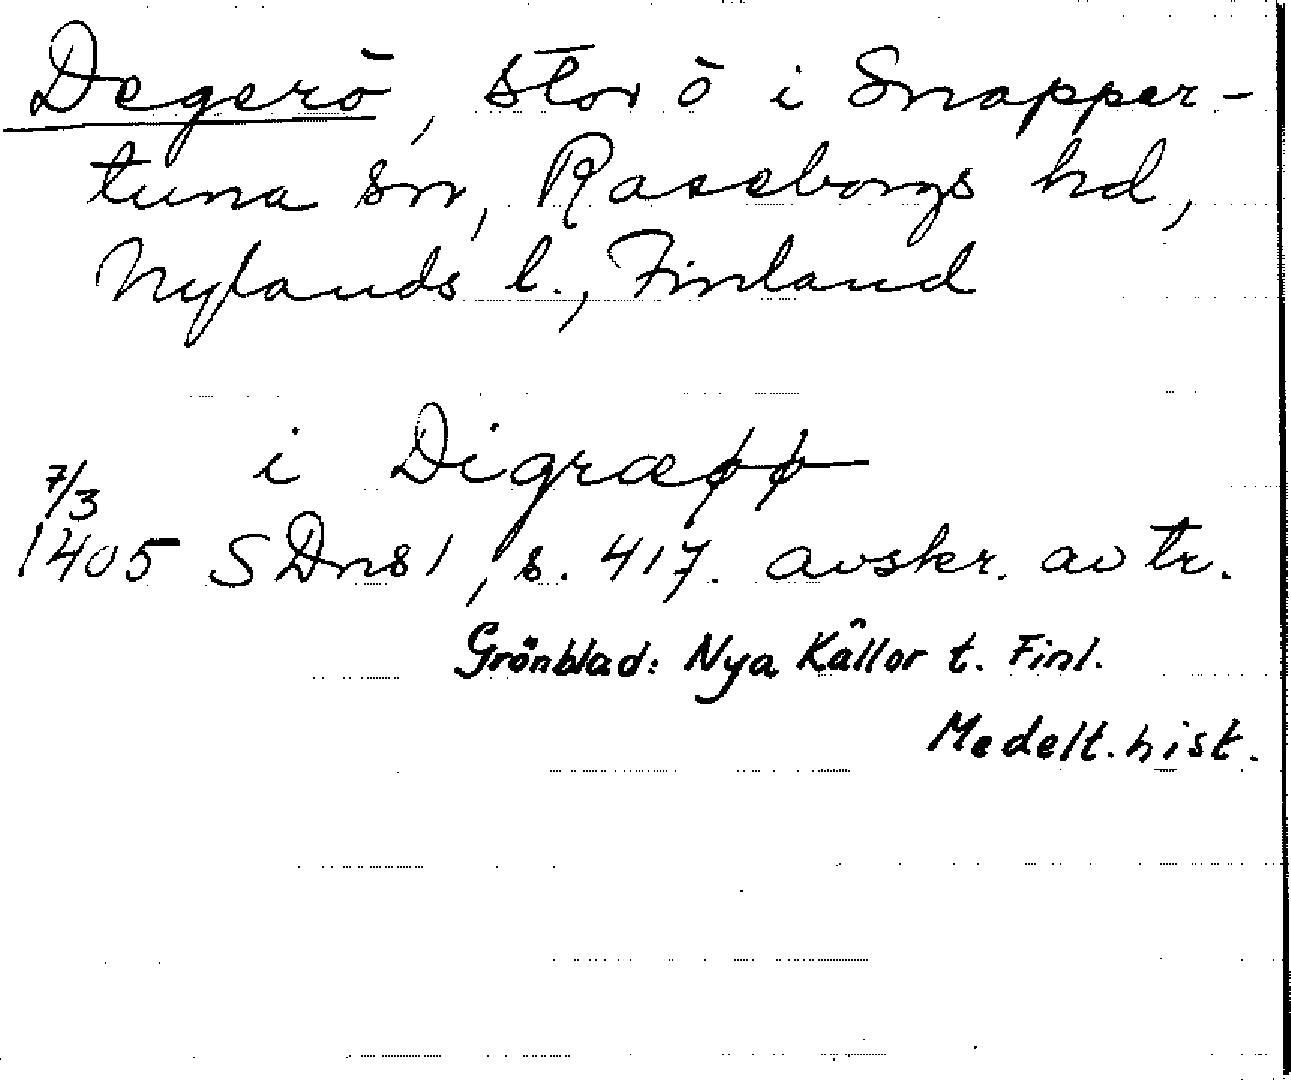 Degerö, stor ö i Snapper-
tuna sn, Raseborgs hd,
Nylands l., Finland
i Digræøø
7/3
1405 SDns1, s. 417. avskr. av tr.
Grönblad: Nya Källor t. Finl.
Medelt. hist.